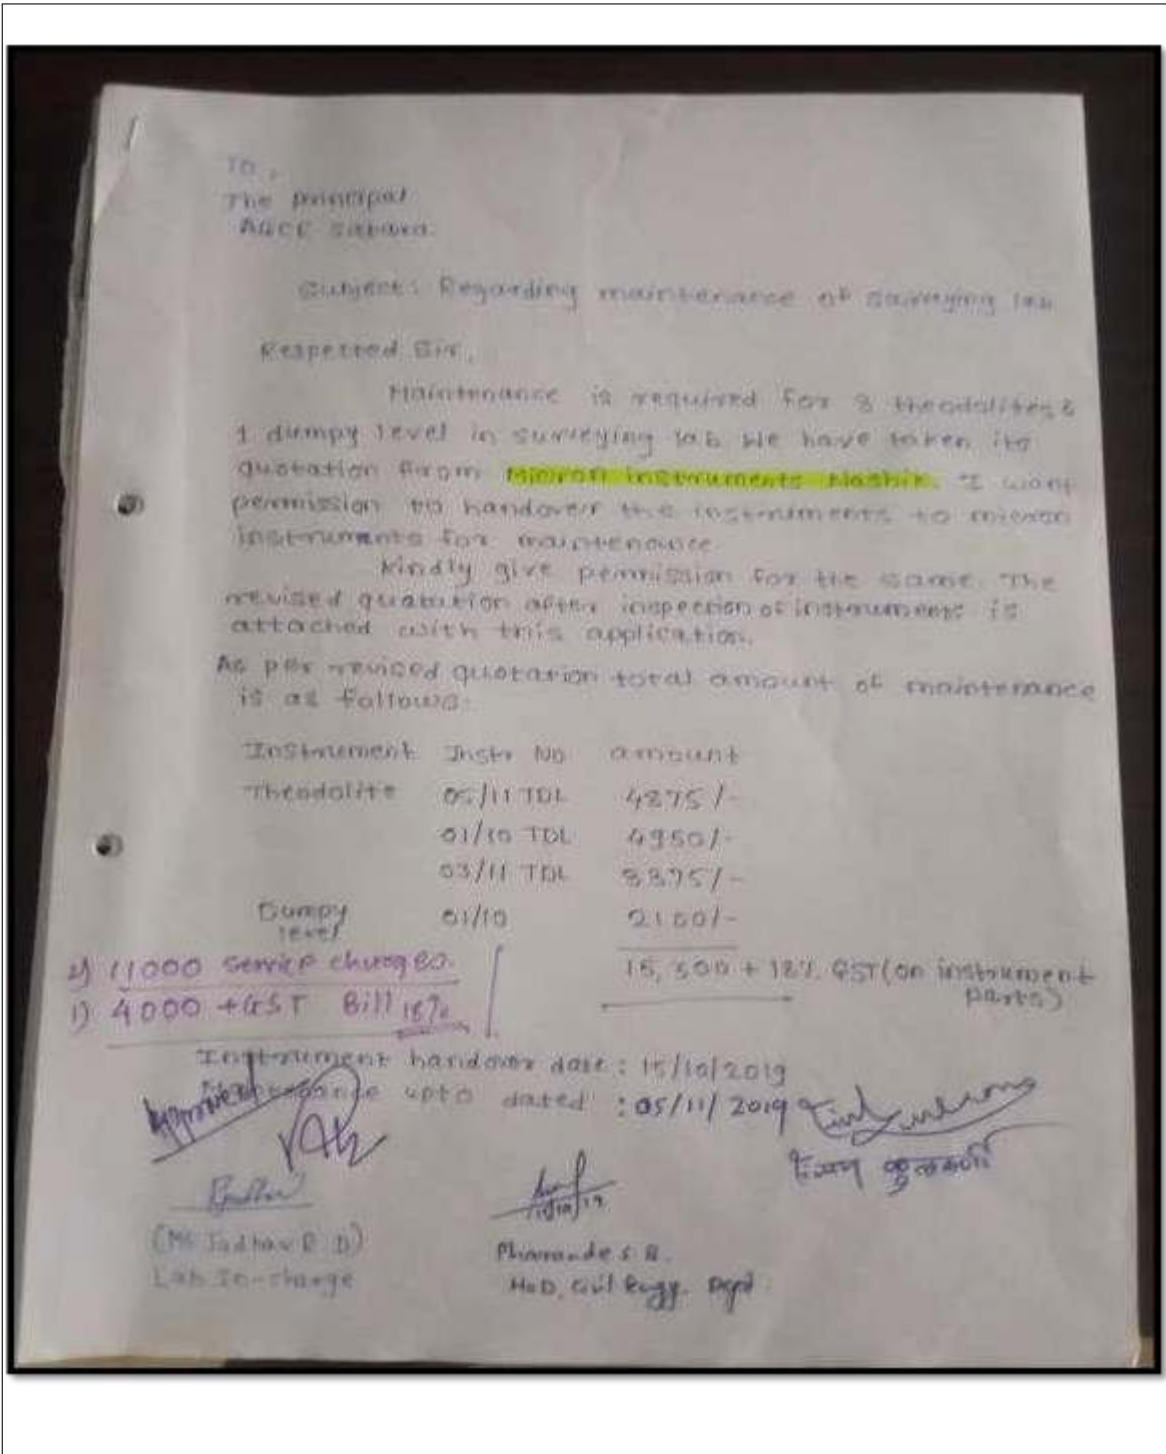 To,
The principal
AGCE Satara.
Subject: Regarding maintenance of surveying lab
Respected Sir,
Maintenance is required for 3 theodolites &
1 dumpy level in surveying lab We have taken its
quotation from Micron instruments Nashik. I want
permission to handover the instruments to micron
instruments for maintenance
Kindly give permission for the same. The
revised quotation after inspection of instruments is
attached with this application.
As per revised quotation total amount of maintenance
is as follows:
Instrument Instr No amount
Theodolite 05/11 TDL 4875/-
01/10 TDL 4950/-
03/11 TDL
Dumpy level 01/10 2100/-
+ 18% GST (on instrument parts)
2) 11000 service charges.
1) 4000 + GST Bill 18%
Instrument handover date: 15/10/2019
upto dated : 05/11/2019
Approved
कुलकर्णी
(Ms Jadhav R D)
Lab In-charge
Pharande S.
HoD, Civil Engg. Dept.